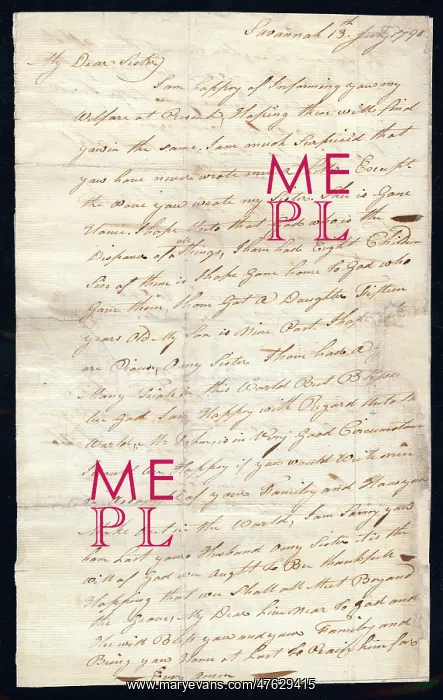 Savannah 13th July 1790
My Dear Sister
I am happy of Informing you my
Welfare at Present, Hoping these will find
you in the same. I am much Surprised that
you have never wrote me a Except
the one you wrote my Sister She is Gone
Home I hope Unto that God who is the
Disposer of all things, I have had Eight Children
Six of them is I hope Gone home to God who
Gave them, I have Got a Daughter Fifteen
years Old My Son is Nine Past. I hope
are Pious, O my Sister I have had a
Many Trials in this World But Blessed
be God I am Happy with Regard Unto the
World, Mr is in Very Good Circumstance
I would be Happy if you would Write me
of your Family and How you
Make out in the World, I am Sorry you
have Lost your Husband O my Sister it is the
Will of God we Aught to Be thankfull
Hopping that we Shall all Meet Beyond
the Grave, My Dear Live Near to God and
He will Bless you and your Family and
Bring you Home at Last to Praise him for
Ever Amen
ME
PL
ME
PL
www.maryevans.com/47629415